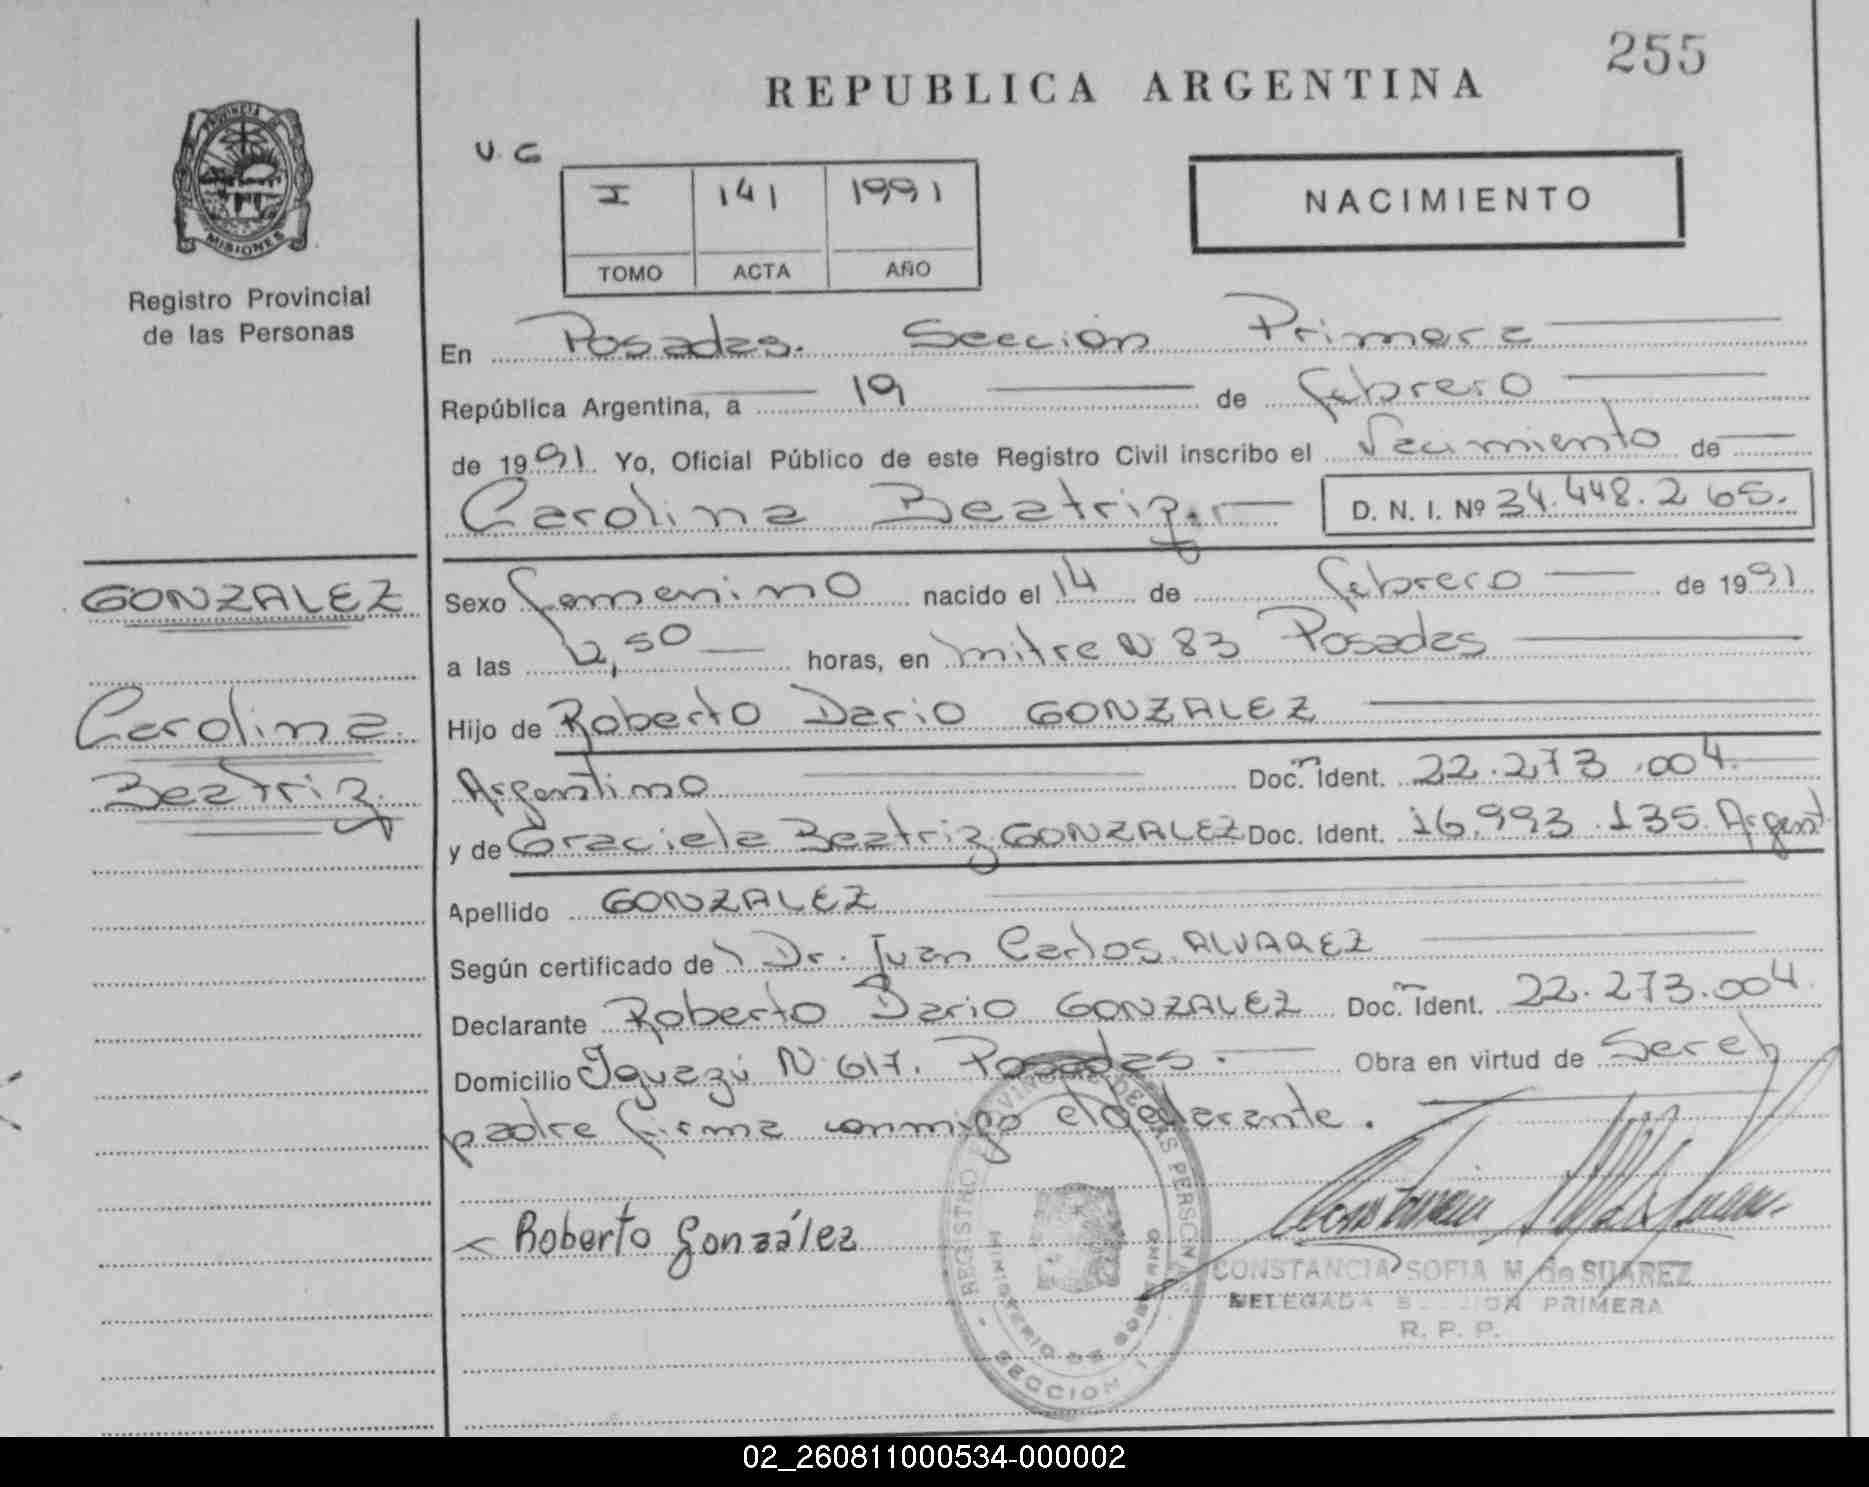 255
REPUBLICA ARGENTINA
PROVINCIA DE
MISIONES
Registro Provincial
de las Personas
V. G
I 141 1991
TOMO ACTA AÑO
NACIMIENTO
En Posadas. Sección Primera
República Argentina, a 19 de febrero
de 1991 Yo, Oficial Público de este Registro Civil inscribo el Nacimiento de
Carolina Beatriz.
D. N. I. Nº 34.448.265.
GONZALEZ
Carolina
Beatriz
Sexo femenino nacido el 14 de febrero de 1991
a las 12,50 horas, en mitre N 83 Posadas
Hijo de Roberto Dario GONZALEZ
Argentino Doc. Ident. 22.273.004.
y de Graciela Beatriz GONZALEZ Doc. Ident. 16.993.135. Argent
Apellido GONZALEZ
Según certificado de Dr. Juan Carlos ALVAREZ
Declarante Roberto Dario GONZALEZ Doc. Ident. 22.273.004.
Domicilio Iguazú N 617. Posadas. Obra en virtud de Ser el
padre firma conmigo el declarante.
Roberto González
REGISTRO PERSONAS
MINISTERIO DE GOBIERNO
SECCION
CONSTANCIA SOFIA M. de SUAREZ
DELEGADA SECCION PRIMERA
R. P. P.
02_260811000534-000002